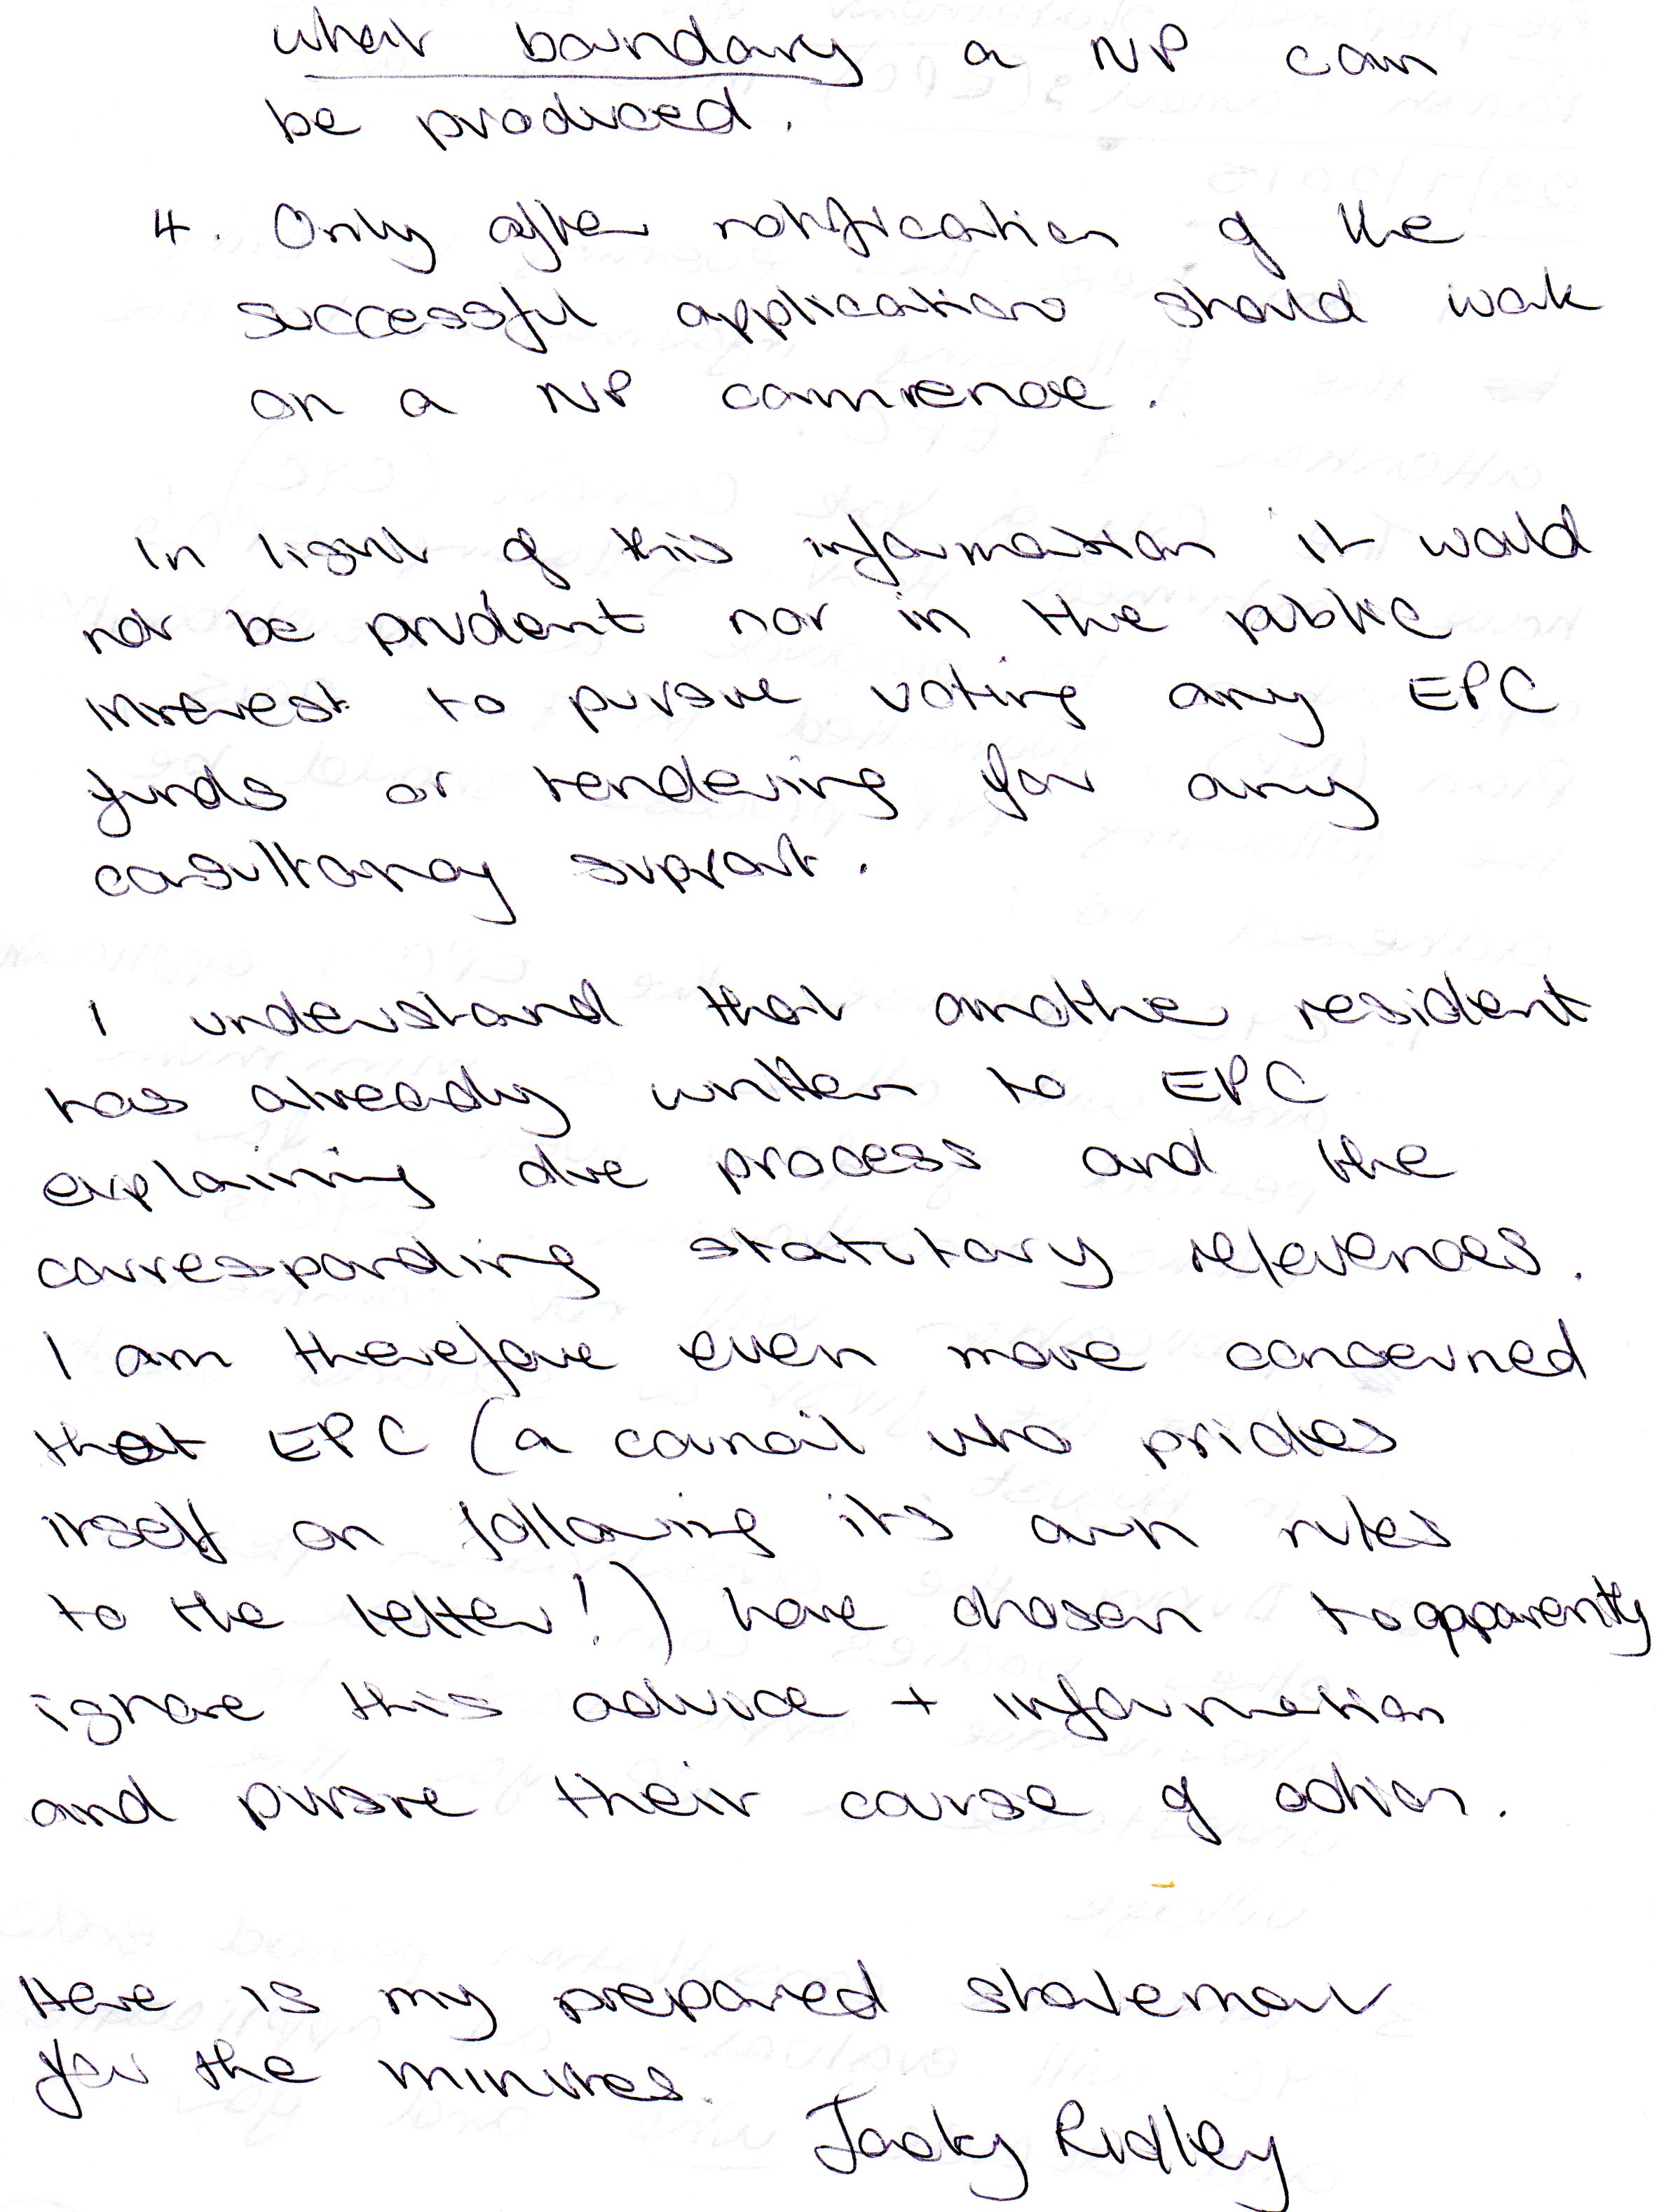 what boundary a NP can
be produced.
4. Only after notification of the
successful applications should work
on a NP commence.
In light of this information it would
not be prudent nor in the public
interest to pursue voting any EPC
funds or tendering for any
consultancy support.
I understand that another resident
has already written to EPC
explaining due process and the
corresponding statutory references.
I am therefore even more concerned
that EPC (a council who prides
itself on following its own rules
to the letter!) have chosen to apparently
ignore this advice + information
and pursue their course of action.
Here is my prepared statement
for the minutes.
Jacky Ridley